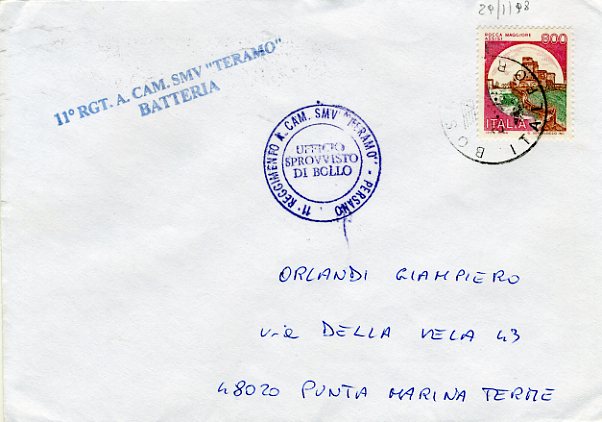 29/1/98
ROCCA MAGGIORE
ASSISI 800
ITALIA
ITALFOR
BOS
11° RGT. A. CAM. SMV "TERAMO"
BATTERIA
11° REGGIMENTO A. CAM. SMV "TERAMO" - PERSANO
UFFICIO
SPROVVISTO
DI BOLLO
ORLANDI GIAMPIERO
via DELLA VELA 43
48020 PUNTA MARINA TERME